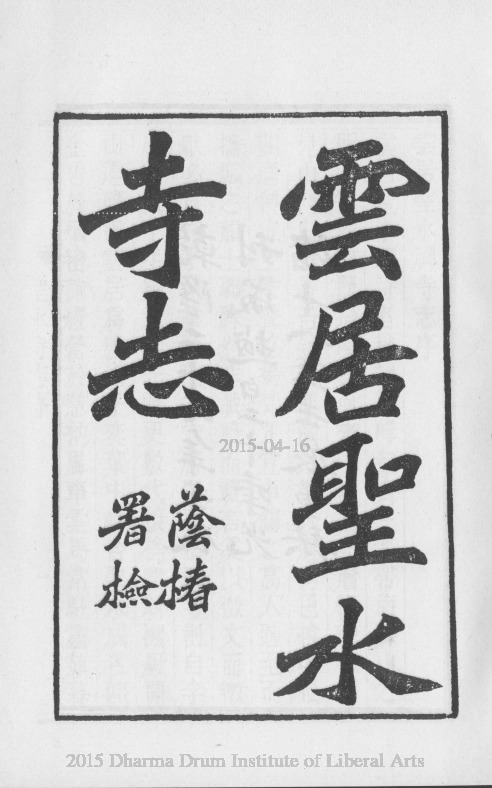 雲居聖水
寺志
蔭椿
署檢
2015-04-16
2015 Dharma Drum Institute of Liberal Arts